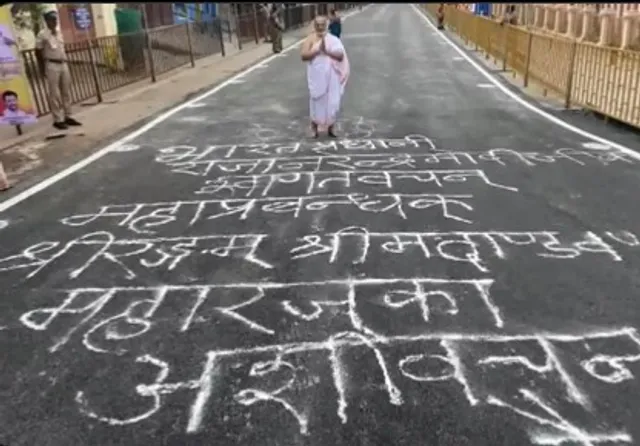 भारत प्रधानी
राजा नरेन्द्र
स्वागतवचन
महाप्रबन्धक
श्रीरङ्गम श्रीमदाण्डवन
महाराज का
आशीर्वचन